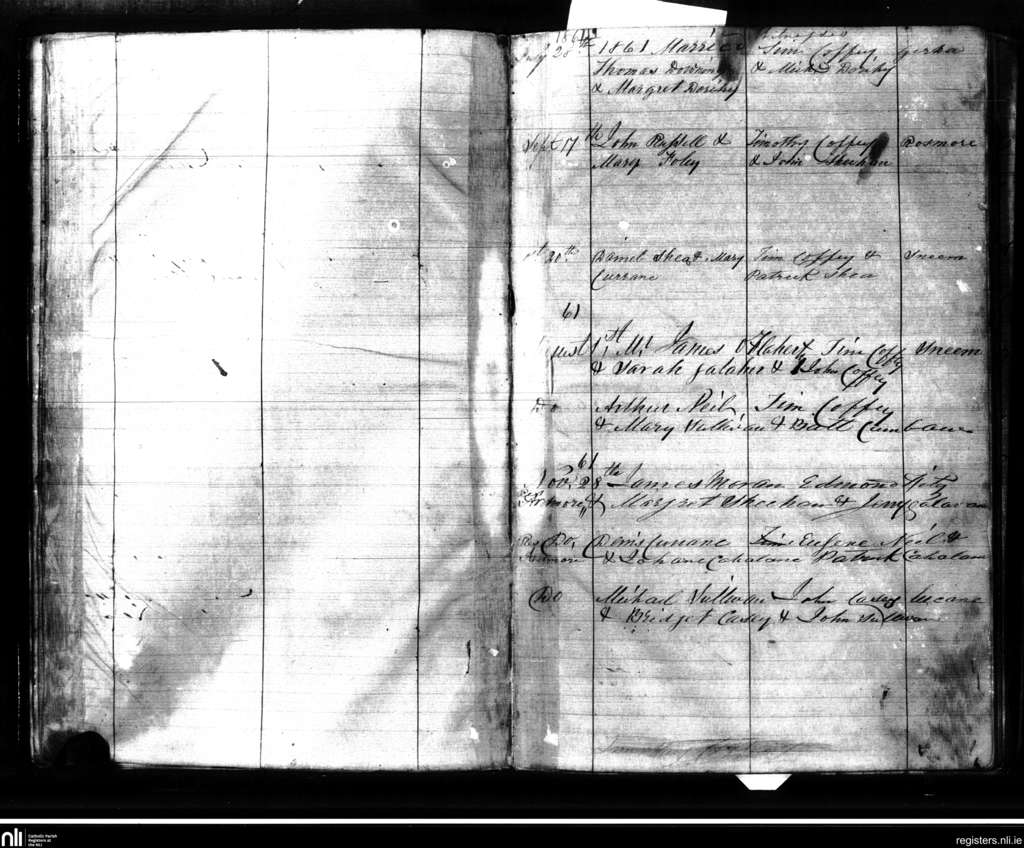 1861
July 28th 1861 Married Tim Coffey
Thomas Downing & Mick Dorihy
& Margret Dorihy
Sept 17th John Russell & Timothy Coffey Rosmore
Mary Foley & John Sheehan
30th Daniel Shea & Mary Tim Coffey & Sneem
Currane Patrick Shea
61
1st Mr James O Flahert Tim Coffey Sneem
& Sarah & John Coffey
Do Arthur Neil Tim Coffey
& Mary Sullivan & Batt
61
Nov. 28th James Moran Edmond Fitz
& Margret Sheehan & Jerry
Do. Denis Currane Tim Eugene Neil &
& Johane Cahalane Patrick Cahalane
Do Michael Sullivan John Casey
& Bridget Casey & John Sullivan
nli
Catholic Parish
Registers at
the NLI
registers.nli.ie